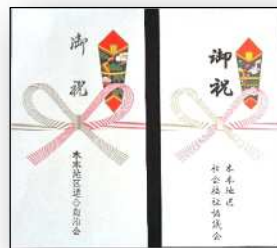 御祝
木本地区連合自治会
御祝
木本地区
社会福祉協議会